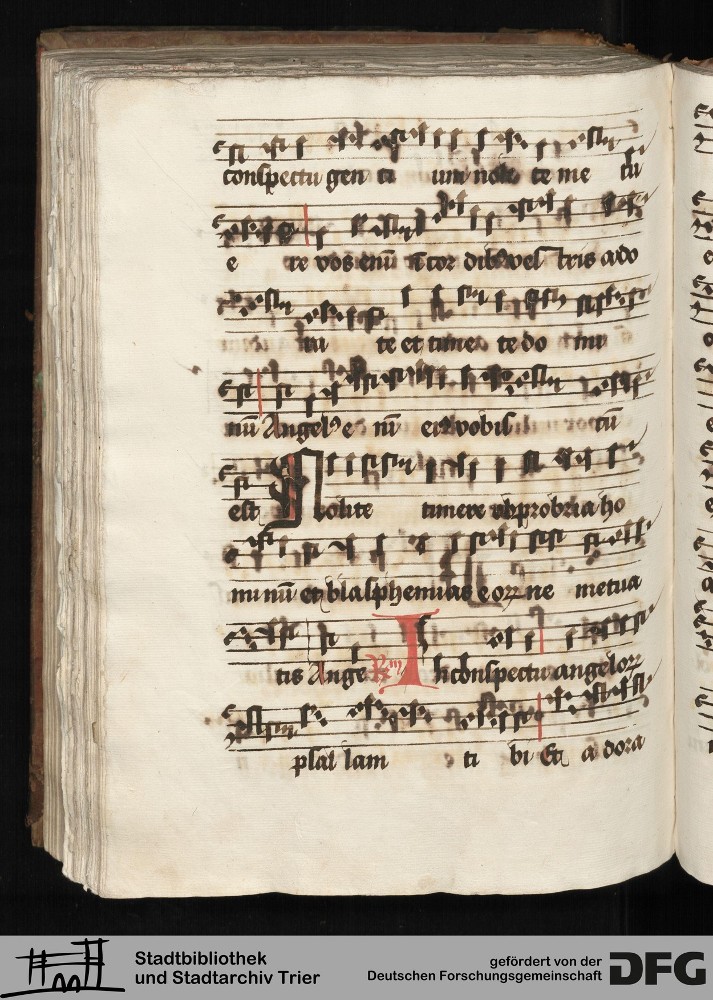 conspectu gen ti um nolite te me tu
e re vos enū ī cor dibꝰ vel tris ado
ra te et timete te do mi
nū Angelꝰ e nī eiꝰ vobis cū
est Nolite timere obprobria ho
minū et blasphemias eoꝝ ne metua
tis Ange Rm In conspectu angeloꝝ
psal lam ti bi Et adora
Stadtbibliothek
und Stadtarchiv Trier
gefördert von der
Deutschen Forschungsgemeinschaft
DFG